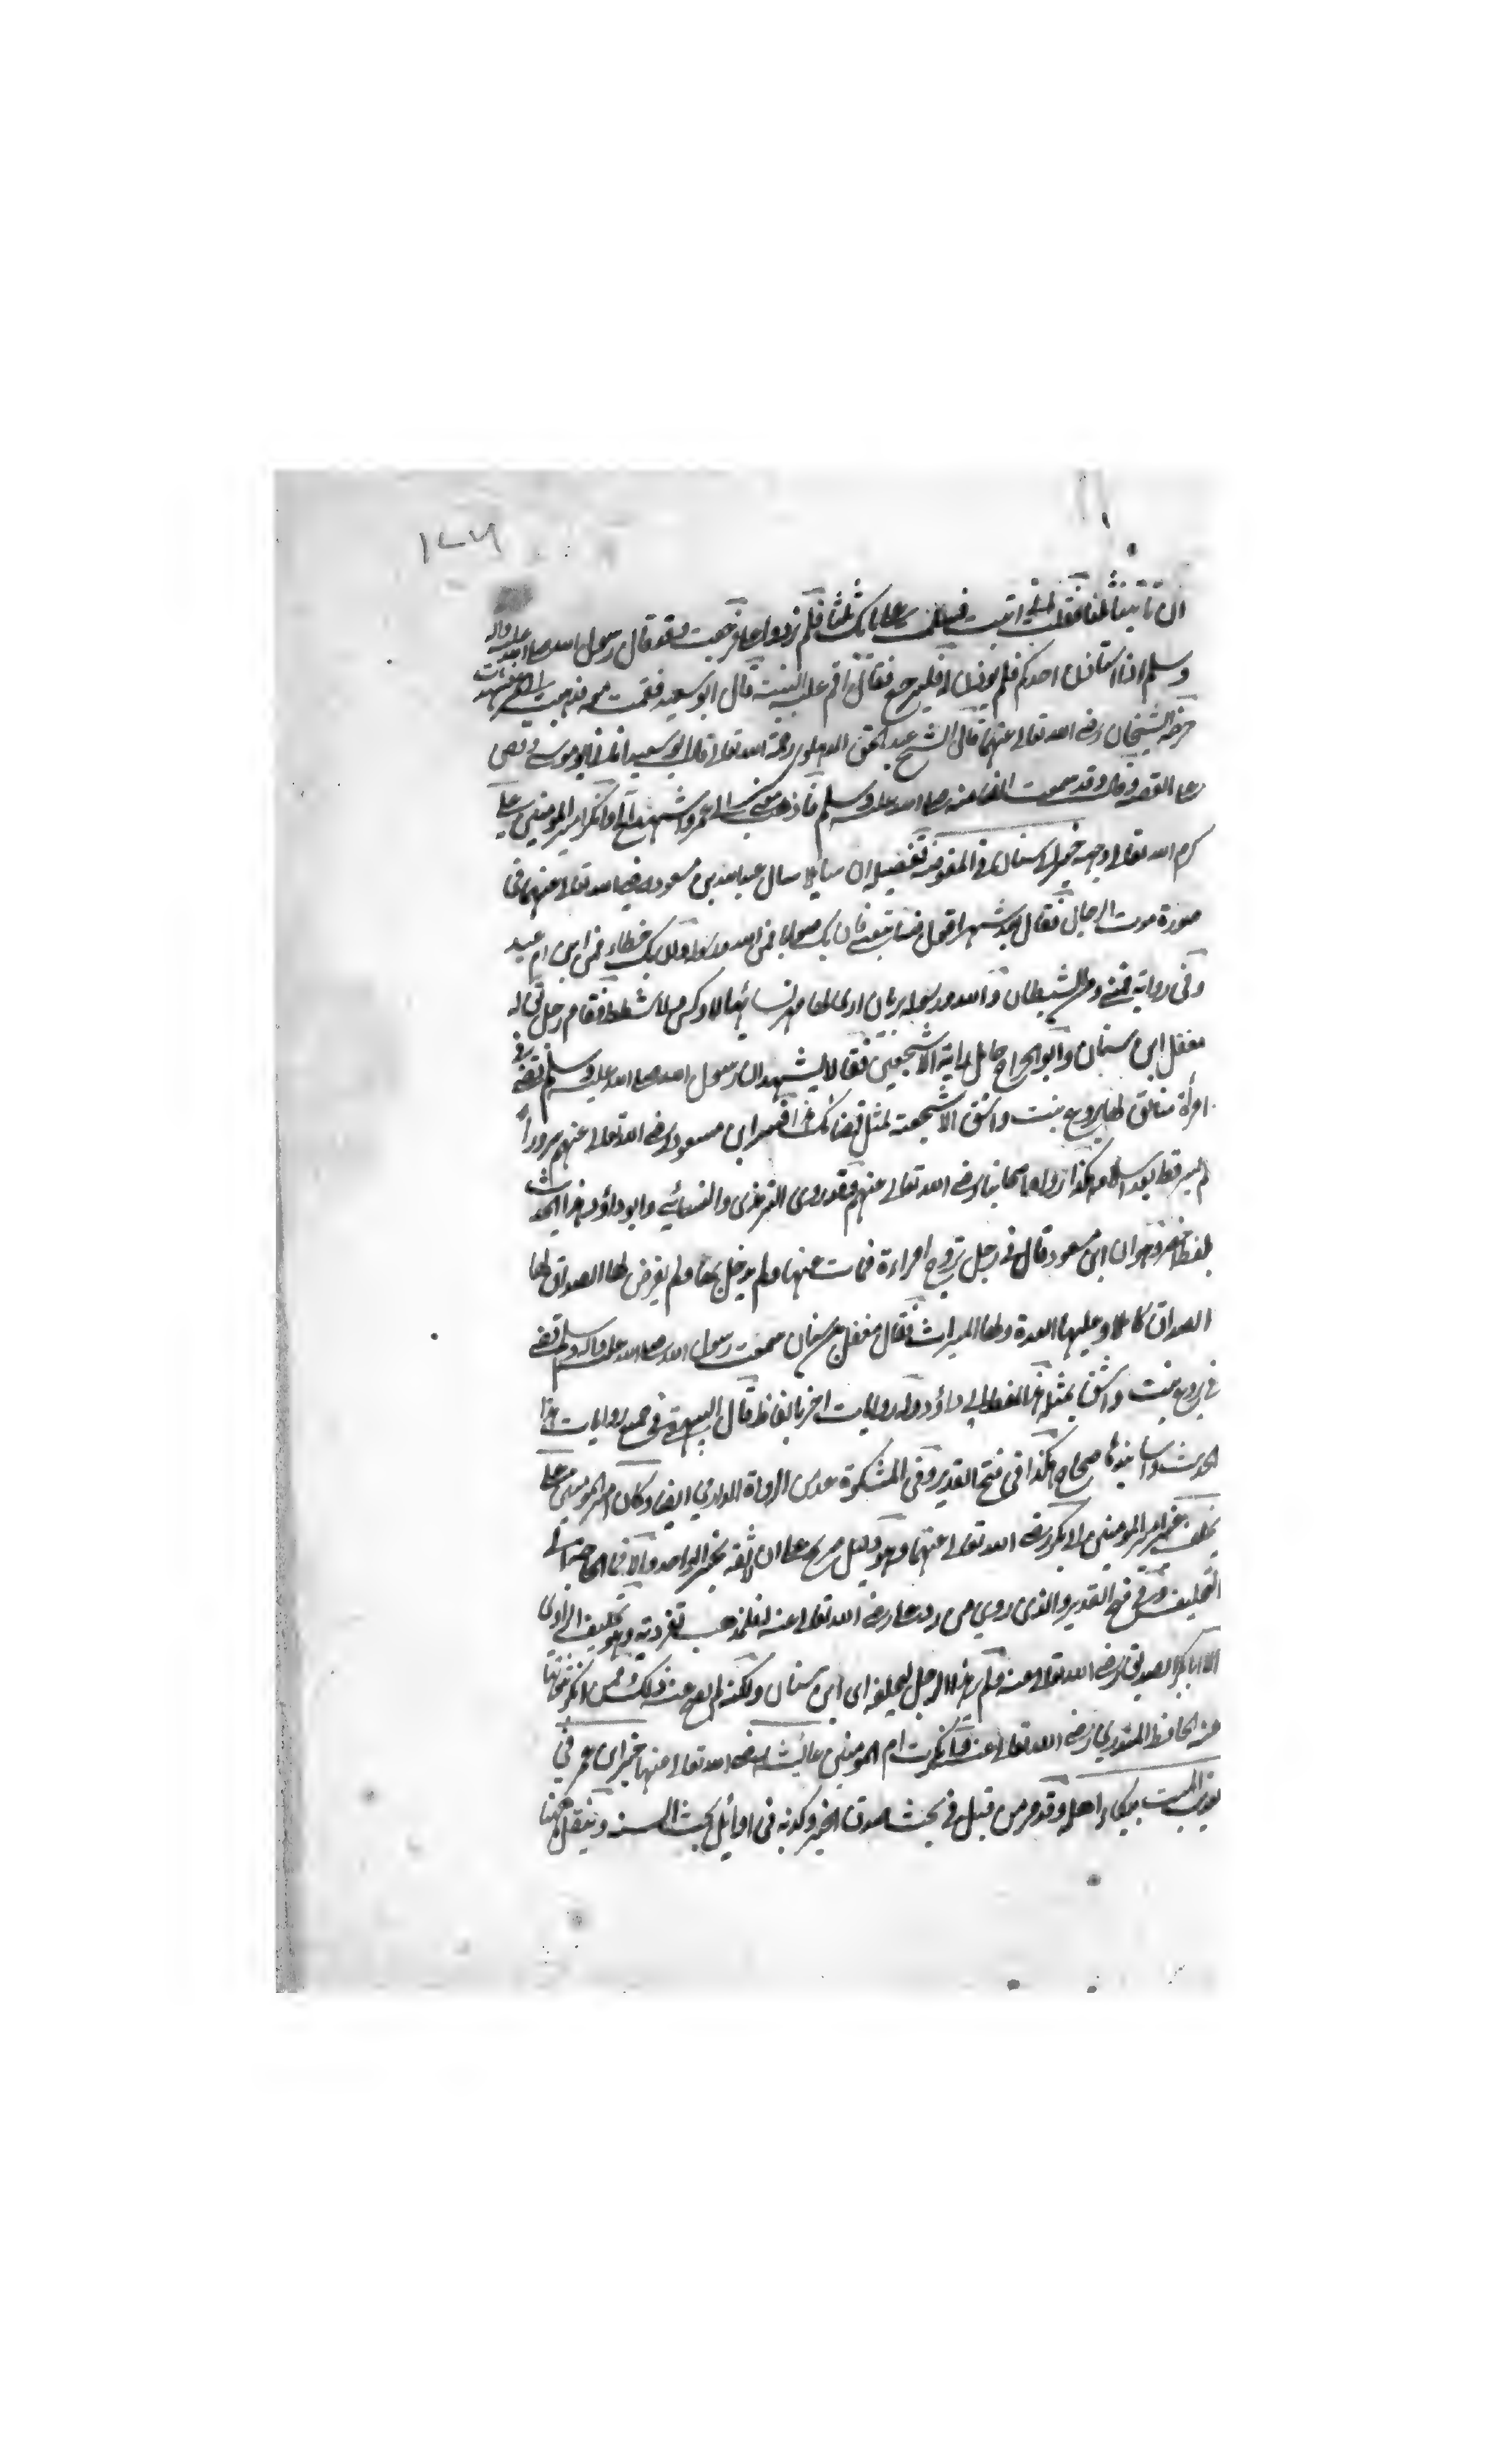 ١٧٦
ان تأتينا فقلت اني اتيت فسلمت على بابك ثلثا فلم تردوا على فرجعت وقد قال رسول الله صلى الله عليه وآله
وسلم اذا استاذن احدكم فلم يوذن له فليرجع فقال اقم عليه البينة قال ابو سعيد فقمت معه فذهبت الى عمر فشهدت
الشيخان رضى الله تعالى عنهما قال الشيخ عبد الحق الدهلوى رحمة الله تعالى قال ابو سعيد اتانا ابو موسى وقص
على القصة وقال وقد سمعت انت منه صلى الله عليه وسلم فاذهب معى الى عمر واشهد وانكر امير المومنين على
كرم الله تعالى وجهه خبر ابن سنان فى المفوضة تفصيله ان سايلا سال عبد الله بن مسعود رضى الله تعالى عنهما فى
صورة موت الرجل فقال بعد شهر اقول فيه بنفسى فان يك صوابا فمن الله ورسوله وان يك خطاء فمن ابن ام عبد
وفى رواية فمنى ومن الشيطان والله ورسوله بريان ارى لها مهر نسائها لا وكس ولا شطط فقام رجل يقال له
معقل ابن سنان وابو الجراح حامل راية الاشجعين فقالا نشهد ان رسول الله صلى الله عليه وسلم قضى فى
امرأة منا يقال لها بروع بنت واشق الاشجعية بمثل قضائك هذا فسر ابن مسعود رضى الله تعالى عنهم سرورا
لم يسر قط بعد اسلامه هكذا رواه اصحابنا رضى الله تعالى عنهم وقد روى الترمذى والنسائى وابو داؤد هذا الحديث
بلفظ اخر وهو ان ابن مسعود قال فى رجل تزوج امراءة فمات عنها ولم يدخل بها ولم يفرض لها الصداق لها
الصداق كاملا وعليها العدة ولها الميراث فقال معقل بن سنان سمعت رسول الله صلى الله عليه وآله وسلم قضى
فى بروع بنت واشق بمثله هذا لفظ ابى داؤد وله روايات اخر بالفاظ قال البيهقى فى جميع روايات هذا
الحديث واسانيدها صحاح هكذا فى فتح القدير وفى المشكوة عدى الرواة الدارمى ايضا وكان امير المومنين على
يحلف غير امير المومنين ابى بكر رضى الله تعالى عنهما وهو دليل صريح على ان لا ثقة بخبر الواحد والا فما الحاجة الى
التحليف وفى فتح القدير والذى روى من رد على رضى الله تعالى عنه فلمذهب تفرد به وهو تحليف الراوى
الا ابا بكر الصديق رضى الله تعالى عنه ولم ير هذا الرجل ليحلفه اى ابن سنان ولكنه لم يصح عنه ذلك وممن انكر ثبوتها
عنه الحافظ المنذرى رضى الله تعالى عنه وانكرت ام المومنين عائيشة رضى الله تعالى عنها خبر ابن عمر فى
تعذيب الميت ببكاء اهله وقد مر من قبل فى بحث صدق الخبر وكذبه فى اوائل بحث السنة وينقل ههنا